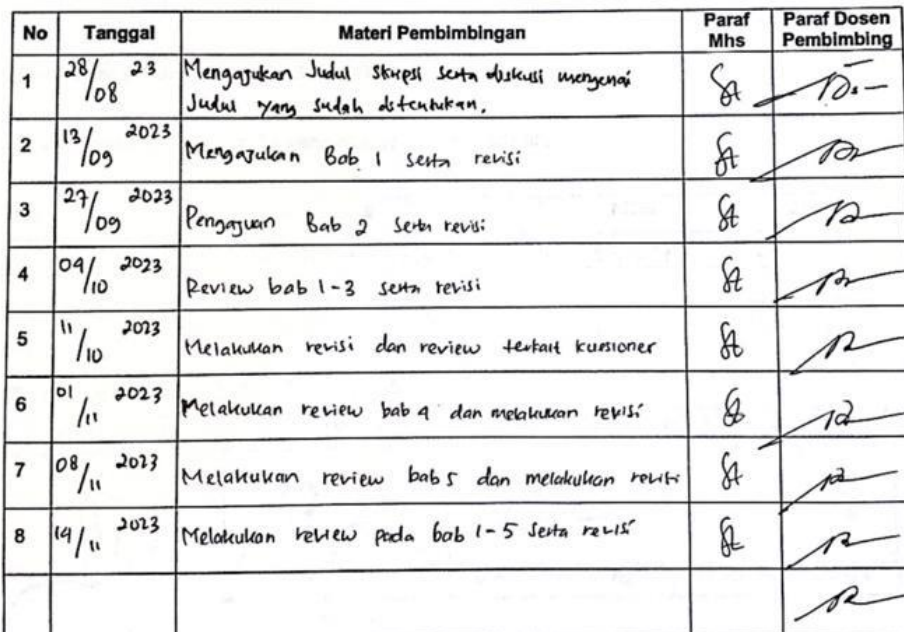 No Tanggal Materi Pembimbingan Paraf Mhs Paraf Dosen Pembimbing
1 28/08 23 Mengajukan Judul Skripsi serta diskusi mengenai
Judul yang sudah ditentukan.
2 13/09 2023 Mengajukan Bab 1 serta revisi
3 27/09 2023 Pengajuan Bab 2 serta revisi
4 04/10 2023 Review bab 1-3 serta revisi
5 11/10 2023 Melakukan revisi dan review terkait kuesioner
6 01/11 2023 Melakukan review bab 4 dan melakukan revisi
7 08/11 2023 Melakukan review bab 5 dan melakukan revisi
8 14/11 2023 Melakukan review pada bab 1-5 serta revisi